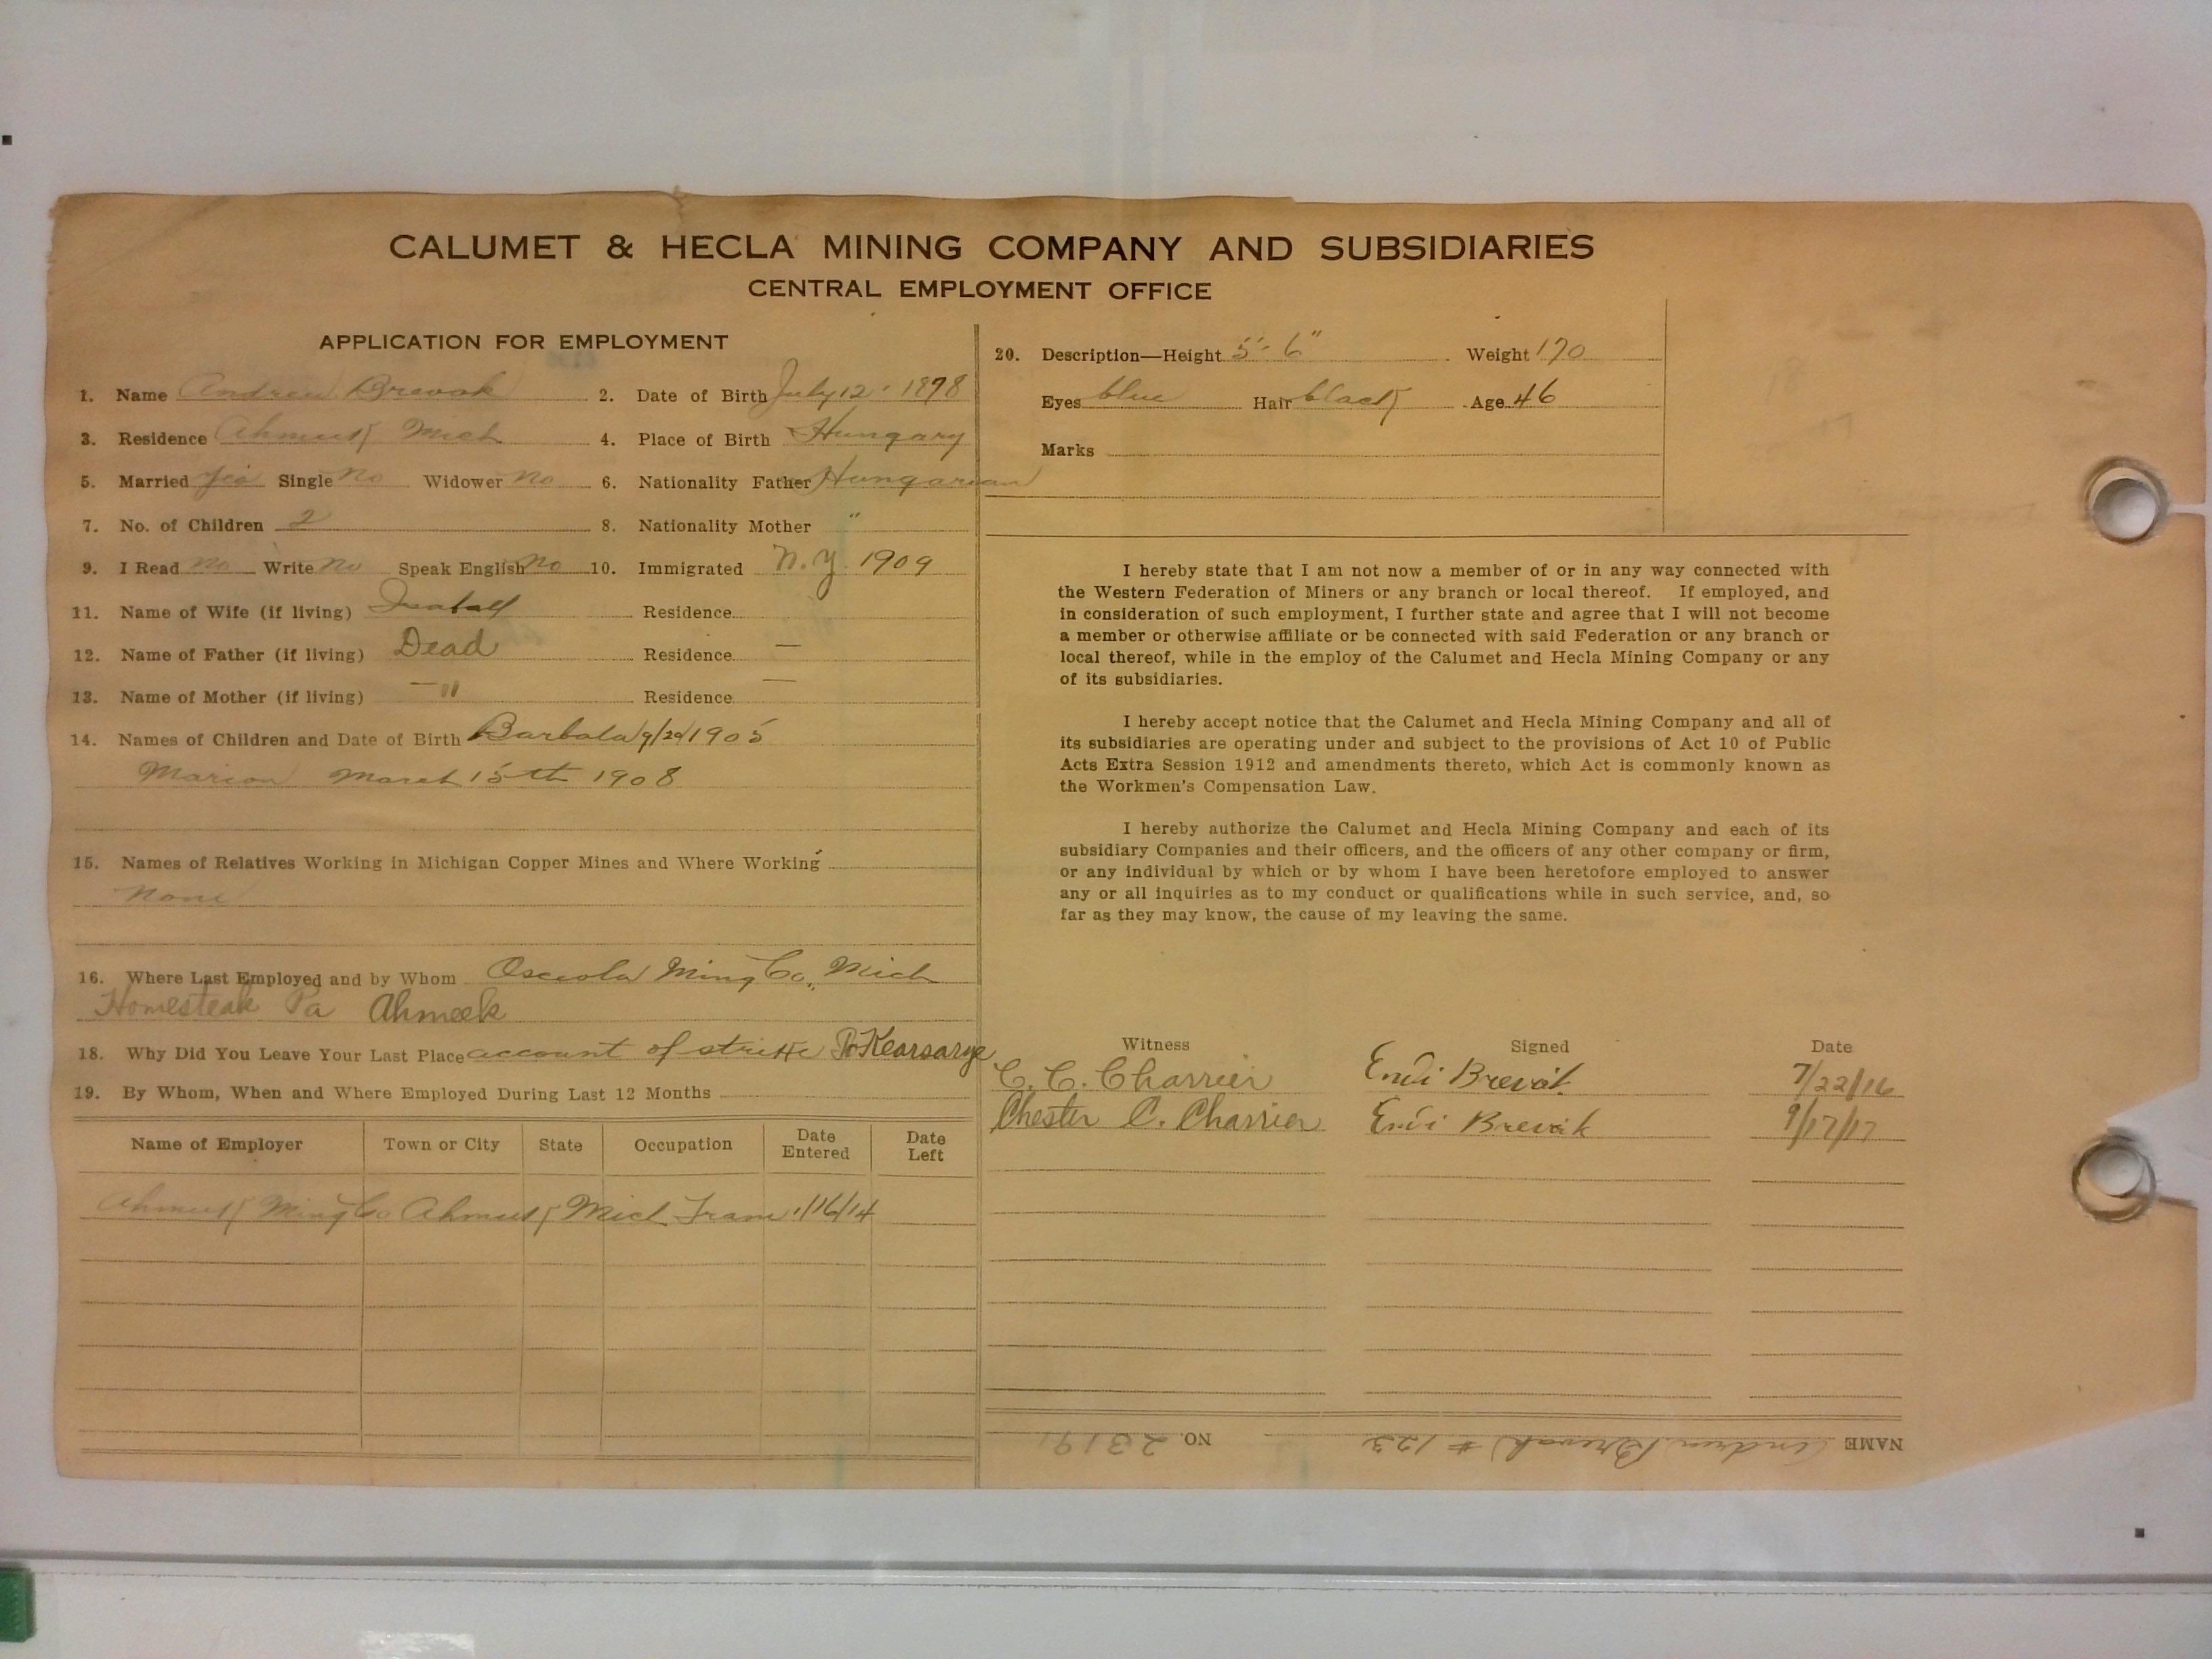 CALUMET & HECLA MINING COMPANY AND SUBSIDIARIES
CENTRAL EMPLOYMENT OFFICE
APPLICATION FOR EMPLOYMENT
1. Name Andrew Brevak 2. Date of Birth July 12 1878
3. Residence Ahmeek Mich 4. Place of Birth Hungary
5. Married Yes Single No Widower No 6. Nationality Father Hungarian
7. No. of Children 2 8. Nationality Mother "
9. I Read No Write No Speak English No 10. Immigrated N.Y. 1909
11. Name of Wife (if living) Residence
12. Name of Father (if living) Dead Residence —
13. Name of Mother (if living) —" Residence —
14. Names of Children and Date of Birth Barbala 9/20/1905
Marion March 15th 1908
15. Names of Relatives Working in Michigan Copper Mines and Where Working
None
16. Where Last Employed and by Whom Osceola Ming Co., Mich
Homesteak Pa Ahmeek
18. Why Did You Leave Your Last Place account of strike Kearsarge
19. By Whom, When and Where Employed During Last 12 Months
Name of Employer Town or City State Occupation Date Entered Date Left
Ahmeek Ming Co Ahmeek Mich Tram 1/16/14
20. Description—Height 5'-6" Weight 170
Eyes blue Hair black Age 46
Marks
I hereby state that I am not now a member of or in any way connected with
the Western Federation of Miners or any branch or local thereof. If employed, and
in consideration of such employment, I further state and agree that I will not become
a member or otherwise affiliate or be connected with said Federation or any branch or
local thereof, while in the employ of the Calumet and Hecla Mining Company or any
of its subsidiaries.
I hereby accept notice that the Calumet and Hecla Mining Company and all of
its subsidiaries are operating under and subject to the provisions of Act 10 of Public
Acts Extra Session 1912 and amendments thereto, which Act is commonly known as
the Workmen's Compensation Law.
I hereby authorize the Calumet and Hecla Mining Company and each of its
subsidiary Companies and their officers, and the officers of any other company or firm,
or any individual by which or by whom I have been heretofore employed to answer
any or all inquiries as to my conduct or qualifications while in such service, and, so
far as they may know, the cause of my leaving the same.
Witness Signed Date
C. C. Charrier Endi Brevak 7/22/16
Chester C. Charrier Endi Brevak 9/17/17
NAME Andrew Brevak # 123 NO. 2319